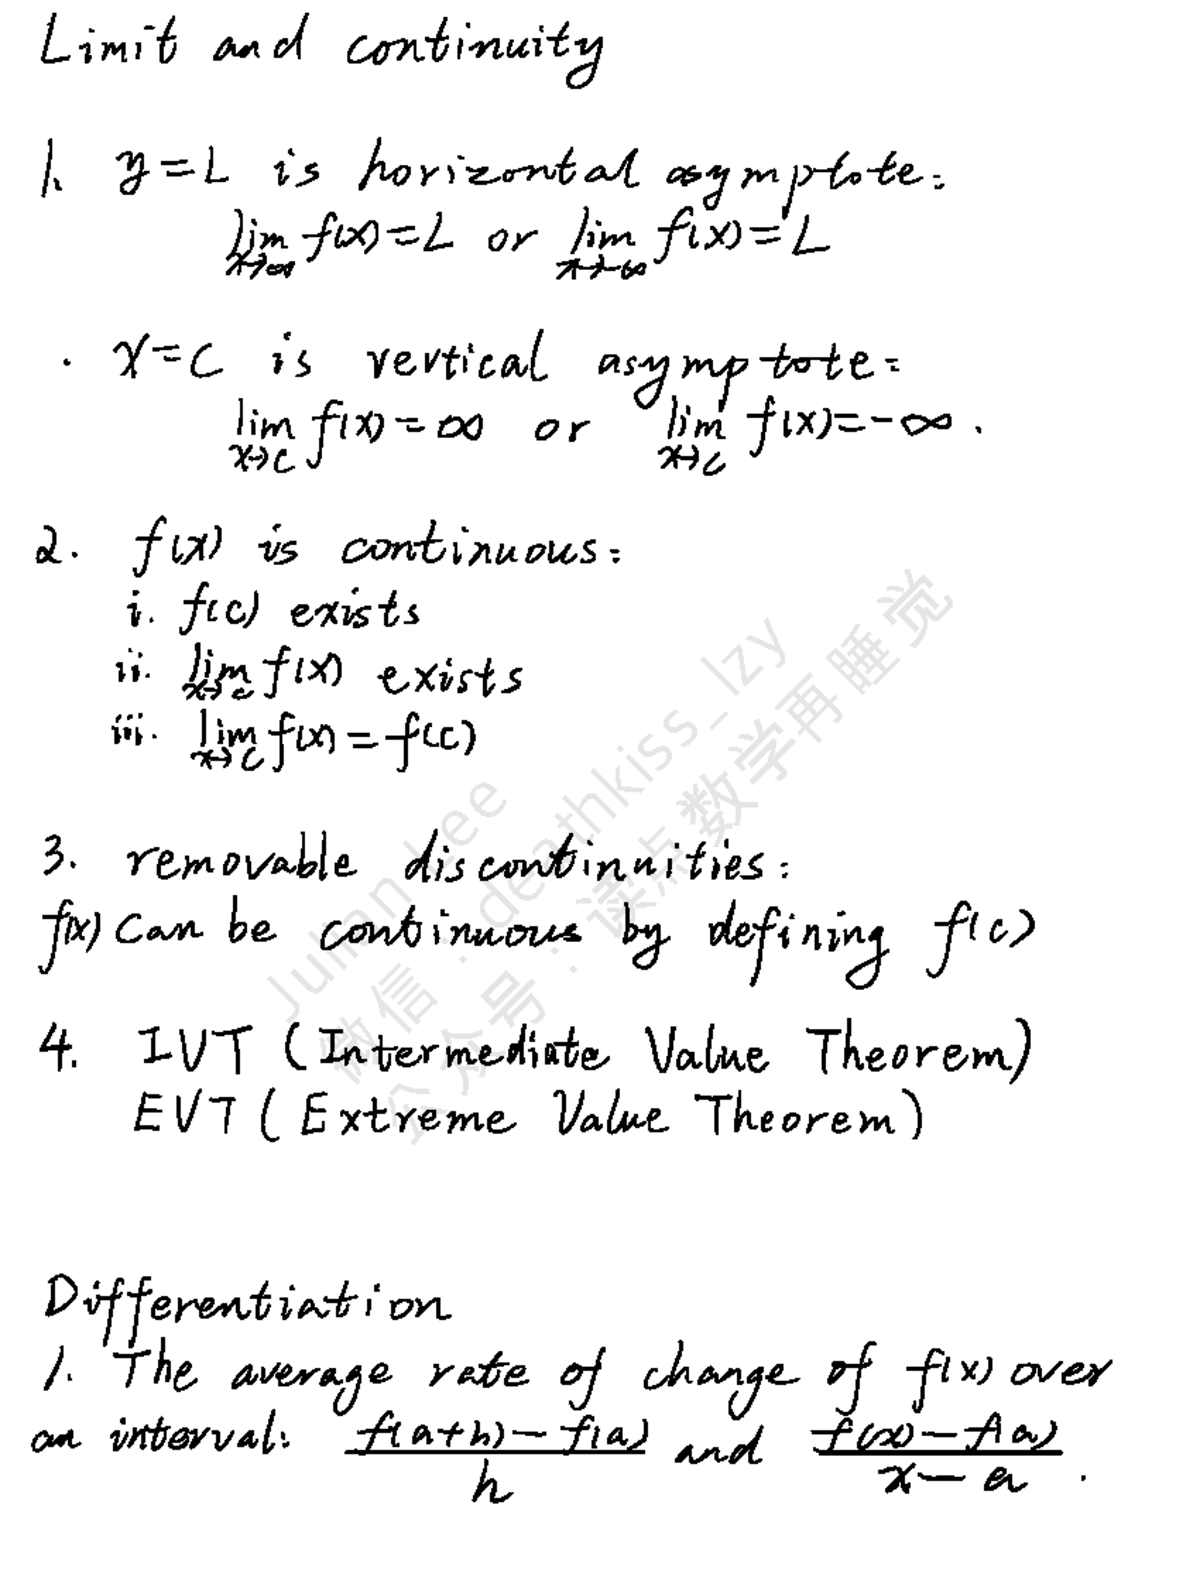 Limit and continuity
1. y=L is horizontal asymptote:
lim x→∞ f(x)=L or lim x→-∞ f(x)=L
· x=c is vertical asymptote:
lim x→c f(x)=∞ or lim x→c f(x)=-∞.
2. f(x) is continuous:
i. f(c) exists
ii. lim x→c f(x) exists
iii. lim x→c f(x)=f(c)
3. removable discontinuities:
f(x) can be continuous by defining f(c)
4. IVT (Intermediate Value Theorem)
EVT (Extreme Value Theorem)
Differentiation
1. The average rate of change of f(x) over
an interval: \frac{f(a+h)-f(a)}{h} and \frac{f(x)-f(a)}{x-a}.
Julian Lee
微信：deathkiss_lzy
公众号：读点数学再睡觉